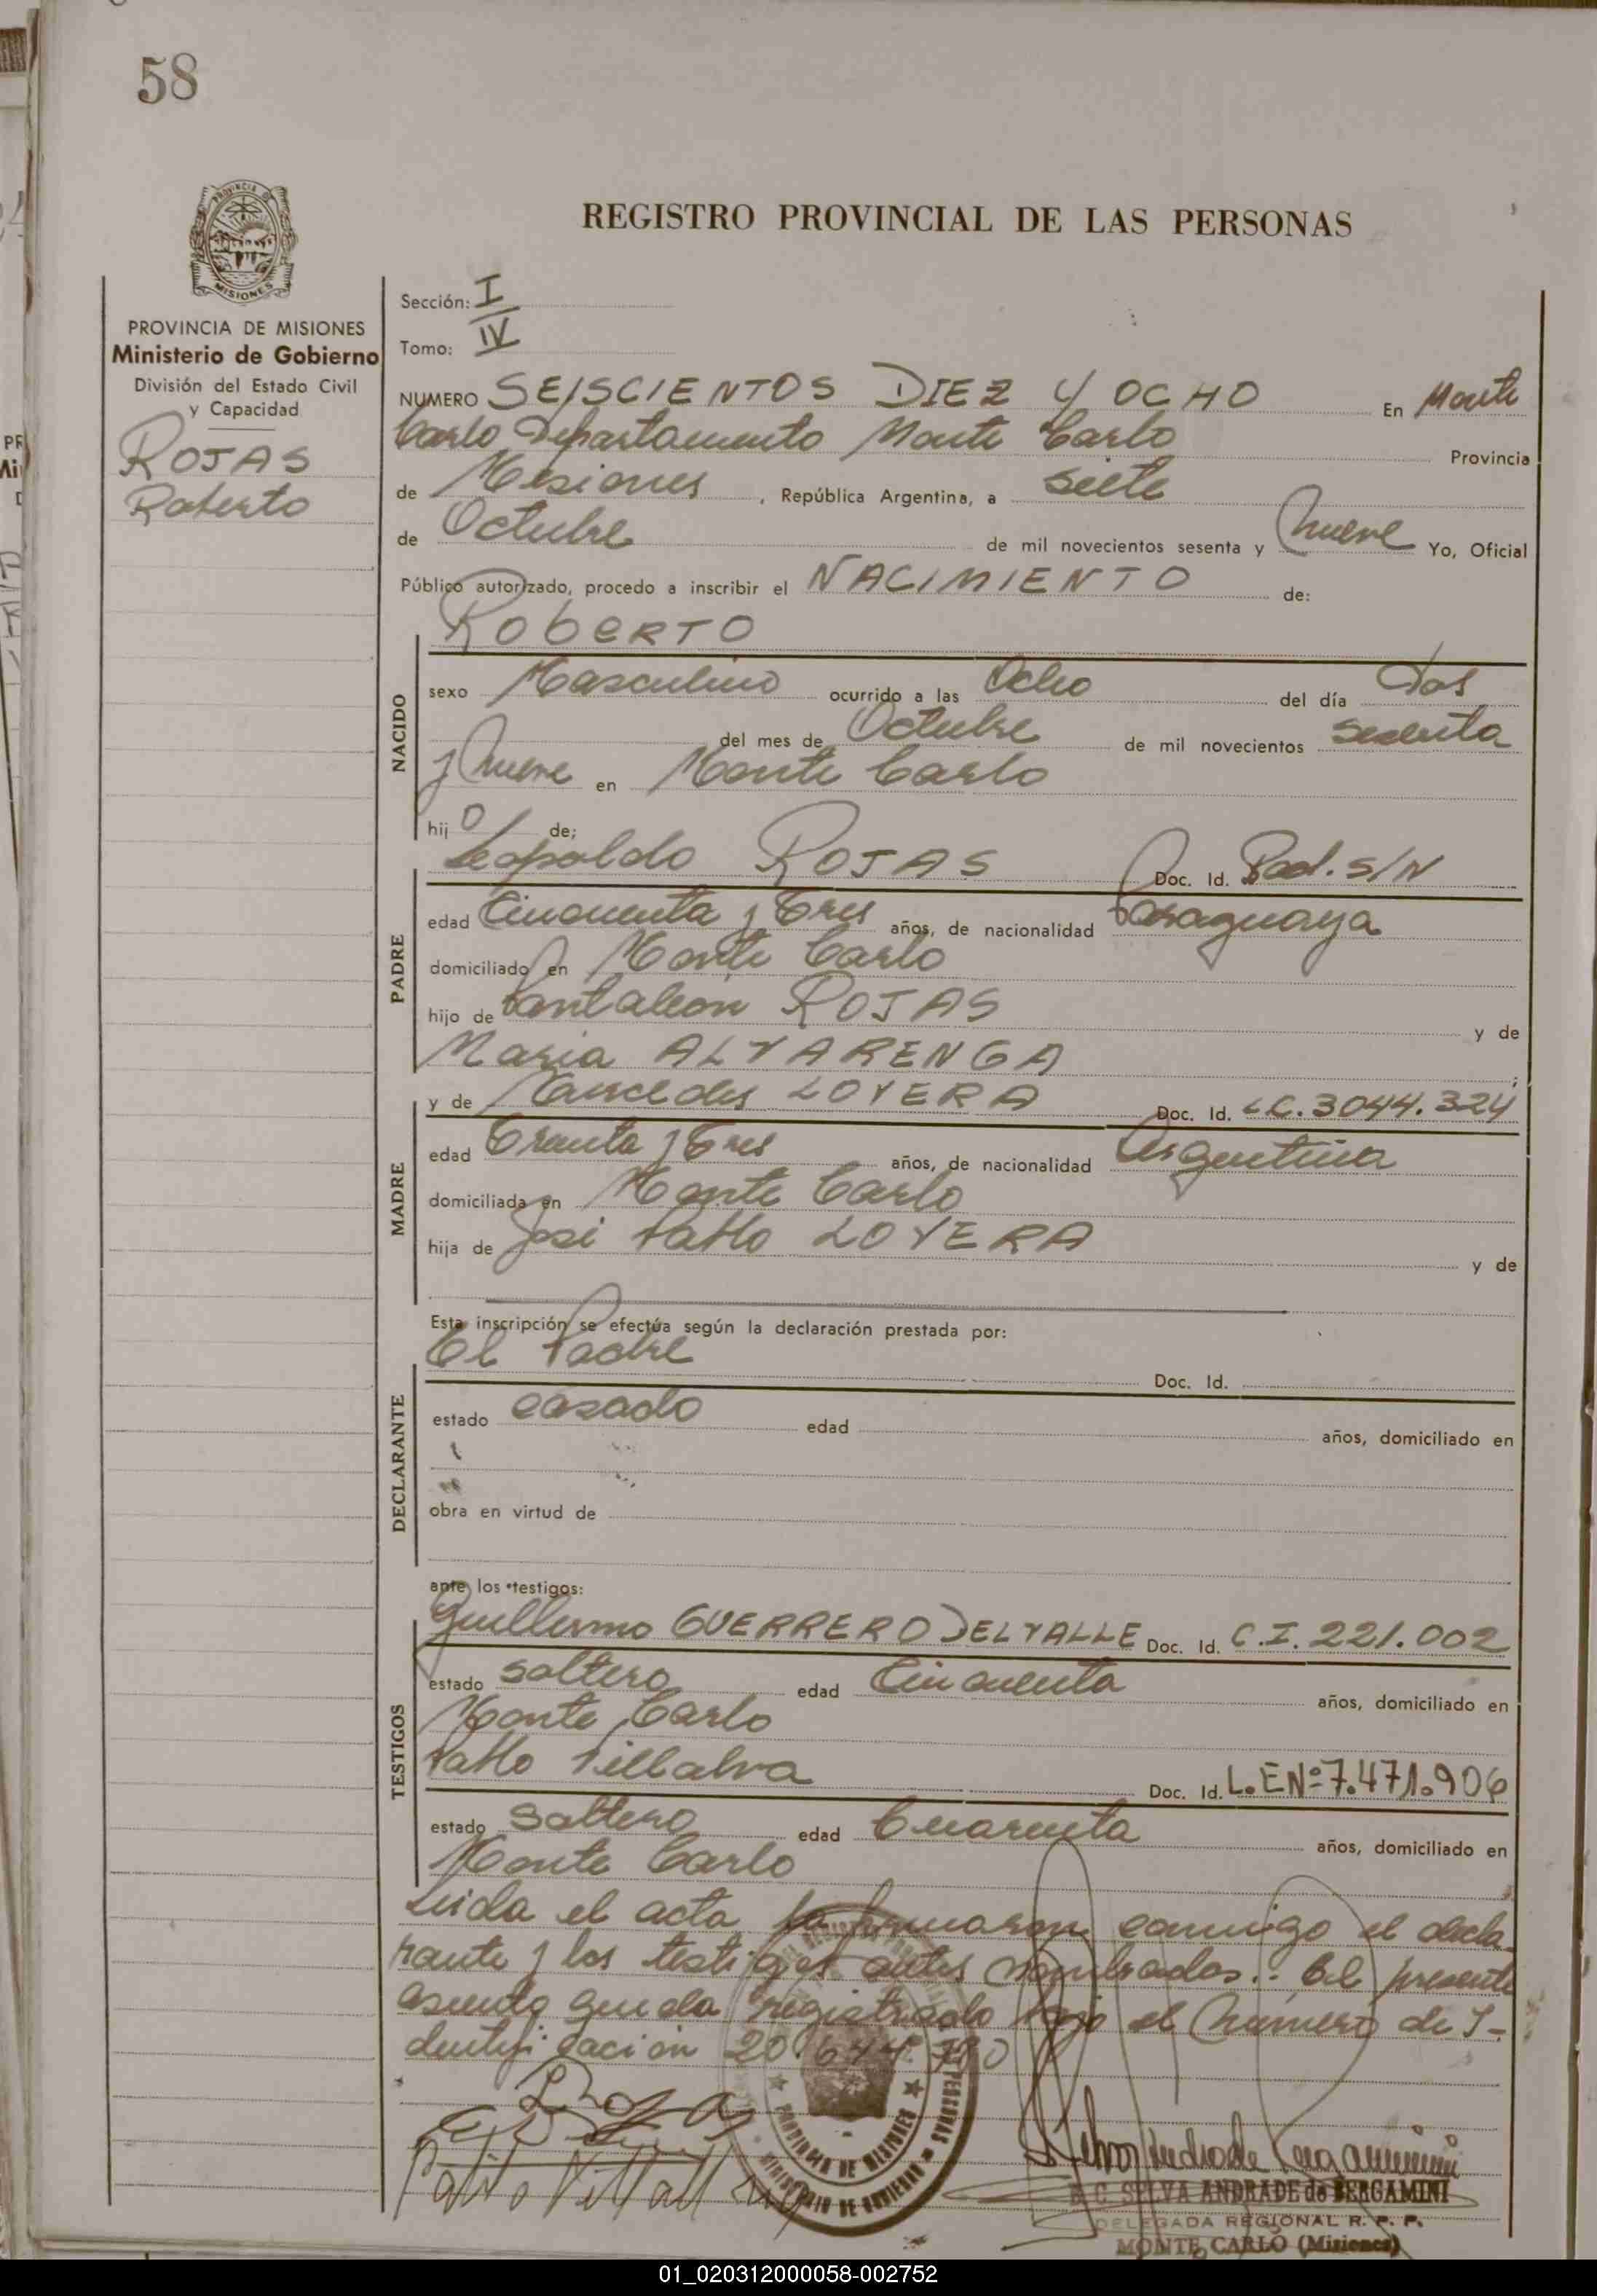 58
PROVINCIA DE MISIONES
REGISTRO PROVINCIAL DE LAS PERSONAS
PROVINCIA DE MISIONES
Ministerio de Gobierno
División del Estado Civil
y Capacidad
ROJAS
Roberto
Sección: I
Tomo: IV
NUMERO SEISCIENTOS DIEZ Y OCHO En Monte
Carlo Departamento Monte Carlo Provincia
de Misiones, República Argentina, a siete
de Octubre de mil novecientos sesenta y Nueve Yo, Oficial
Público autorizado, procedo a inscribir el NACIMIENTO de:
ROBERTO
NACIDO
sexo Masculino ocurrido a las Ocho del día dos
del mes de Octubre de mil novecientos sesenta
y Nueve en Monte Carlo
hijo de;
Leopoldo ROJAS Doc. Id. Rad. S/N
PADRE
edad Cincuenta y Tres años, de nacionalidad Paraguaya
domiciliado en Monte Carlo
hijo de Pantaleon ROJAS y de
Maria ALVARENGA;
y de LOVERA Doc. Id. LC. 3044.324
MADRE
edad Treinta y Tres años, de nacionalidad Argentina
domiciliada en Monte Carlo
hija de José Pablo LOVERA y de
Esta inscripción se efectúa según la declaración prestada por:
El Padre Doc. Id.
DECLARANTE
estado casado edad años, domiciliado en
obra en virtud de
ante los testigos:
Guillermo GUERRERO DELVALLE Doc. Id. C.I. 221.002
TESTIGOS
estado soltero edad Cincuenta años, domiciliado en
Monte Carlo
Pablo Villalva Doc. Id. L.E Nº 7.471.906
estado soltero edad Cuarenta años, domiciliado en
Monte Carlo
Leida el acta la firmaron conmigo el decla-
rante y los testigos antes nombrados.: El presente
asiento queda registrado bajo el Número de I-
dentificación 20.644.
PROVINCIA DE MISIONES
MINISTERIO DE GOBIERNO
SELVA ANDRADE de BERGAMINI
DELEGADA REGIONAL R. P. P.
MONTE CARLO (Misiones)
01_020312000058-002752